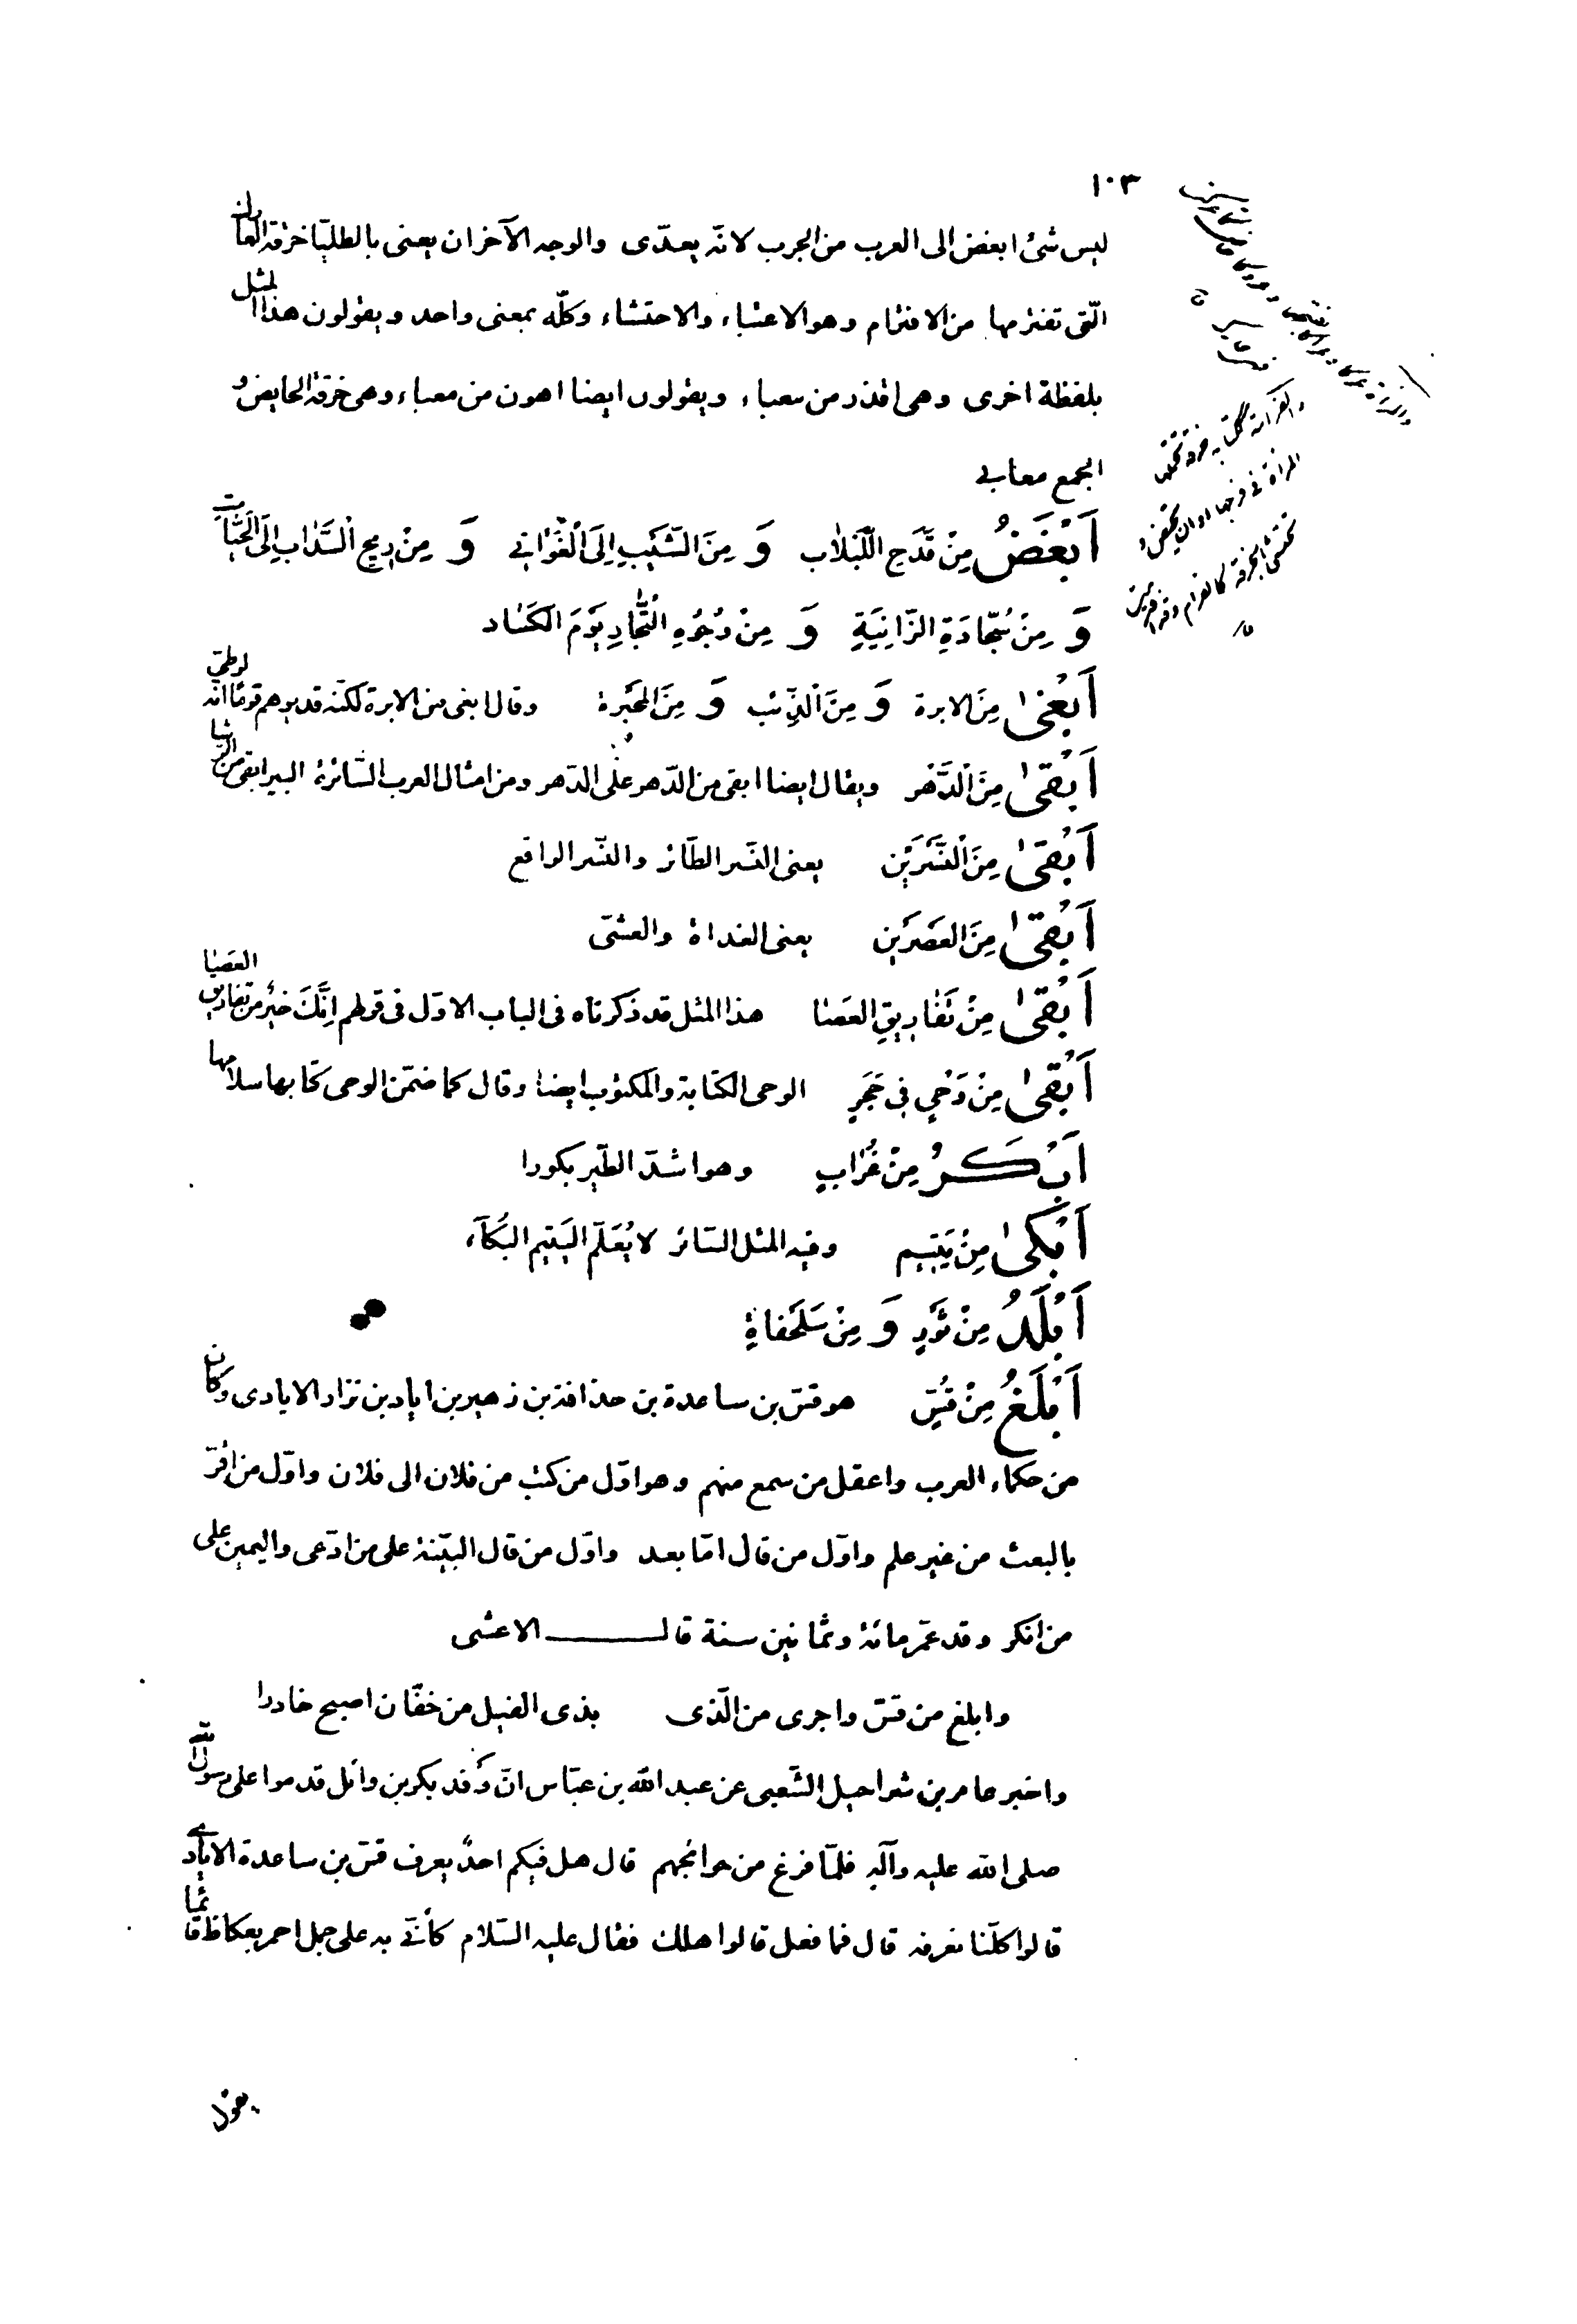 ١٠٣
ليس شئ ابغض الى العرب من الجرب لانّه يعدّى والوجه الآخر ان يعنى بالطليّا خرقة العارك
الّتى تفترمها من الافترام وهو الاعتباء والاحتشاء وكلّه بمعنى واحد ويقولون هذا المثل
بلفظة اخرى وهى اقذر من معباء ويقولون ايضا اهون من معباء وهى خرقة الحايض و
الجمع معابى
اَبْغَضُ مِنْ قَدَحِ اللَّبْلاٰبِ وَ مِنَ الشَّيْبِ اِلَى الْغَوٰانِى وَ مِنْ رِيحِ السَّدٰابِ اِلَى الْحَيّٰاتِ
وَ مِنْ سَجّٰادَةِ الزّانِيَةِ وَ مِنْ وُجُوهِ التُّجّٰارِ يَوْمَ الكَسٰاد
اَبْغٰى مِنَ الابرة وَ مِنَ الْزَّبيب وَ مِنَ المَحْبَرة وقال ابغى من الابرة لكنّه قد يوهم قوما انّه لوطىّ
اَبْقٰى مِنَ الْدَّهْر ويقال ايضا ابقى من الدّهر على الدّهر ومن امثال العرب السّائرة البير ابقى من الرّشا
اَبْقٰى مِنَ الْنَّسْرَيْن يعنى النّسر الطّائر والنّسر الواقع
اَبْقٰى مِنَ العَصْرَيْن يعنى الغداة والعشىّ
اَبْقٰى مِنْ تَفٰارِيقِ العَصٰا هذا المثل قد ذكرناه فى الباب الاوّل فى قولهم اِنَّكَ خيرٌ من تفاريق العَصٰا
اَبْقٰى مِنْ وَحْىٍ فِى حَجَرٍ الوحى الكتابة والمكتوب ايضا وقال كما ضمّن الوحى كتابها سلامها
اَبْكَرُ مِنْ غُرٰابٍ وهو اشدّ الطّير بكورا
اَبْكٰى مِنْ يَتِيم وفيه المثل السّائر لا يُعَلَّم اليَتيم البُكآء
اَبْلَدُ مِنْ ثَوْرٍ وَ مِنْ سَلَحْفاةٍ
اَبْلَغُ مِنْ قُسٍّ هو قسّ بن ساعدة بن حذافة بن زهير بن اياد بن نزار الايادى وكان
من حكماء العرب واعقل من سمع منهم وهو اوّل من كتب من فلان الى فلان واوّل من اقرّ
بالبعث من غير علم واوّل من قال امّا بعد واوّل من قال البيّنة على من ادّعى واليمين على
من انكر وقد عمّر مائة وثمانين سنة قالـــــــ الاعشى
وابلغ من قسّ واجرى من الّذى بذى الغيل من خفّان اصبح خادرا
واخبر عامر بن شراحيل الشّعبى عن عبد الله بن عبّاس انّ وَفد بكر بن وائل قدموا على رسول الله
صلى الله عليه وآله فلمّا فرغ من حوائجهم قال هل فيكم احدٌ يعرف قسّ بن ساعدة الايادى
قالوا كلّنا نعرفه قال فما فعل قالوا هلك فقال عليه السّلام كأنّى به على جمل احمر بعكاظ قائما
يقول
والفرامة ككتابة خرقة تحملها
المرأة فى فرجها اوان تحيض و
تحتشى بالخرقة كالفرام وقد افترمت